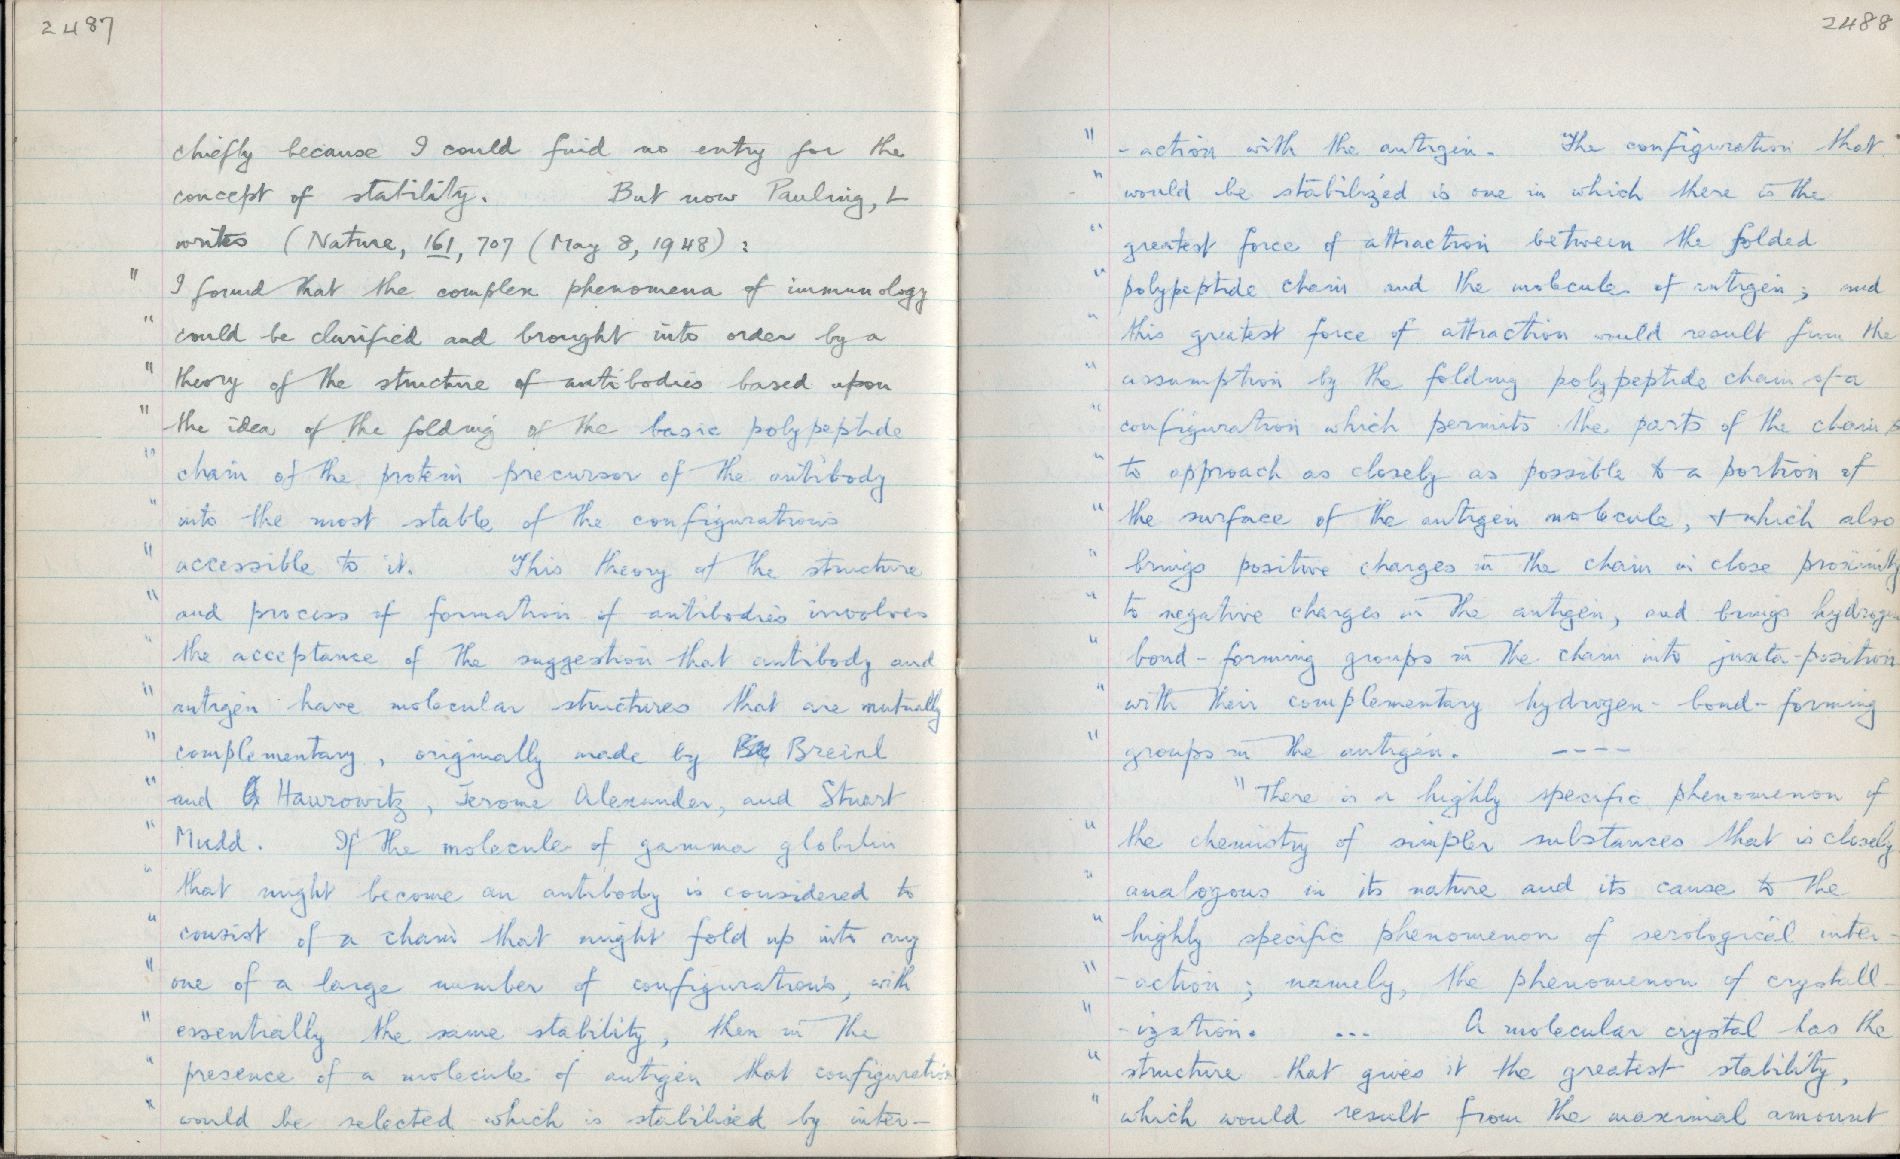 2487
chiefly because I could find no entry for the
concept of stability. But now Pauling, L
writes (Nature, 161, 707 (May 8, 1948):
" I found that the complex phenomena of immunology
" could be clarified and brought into order by a
" theory of the structure of antibodies based upon
" the idea of the folding of the basic polypeptide
" chain of the protein precursor of the antibody
" into the most stable of the configurations
" accessible to it. This theory of the structure
" and process of formation of antibodies involves
" the acceptance of the suggestion that antibody and
" antigen have molecular structures that are mutually
" complementary, originally made by Breinl
" and Haurowitz, Jerome Alexander, and Stuart
" Mudd. If the molecule of gamma globulin
" that might become an antibody is considered to
" consist of a chain that might fold up into any
" one of a large number of configurations, with
" essentially the same stability, then in the
" presence of a molecule of antigen that configuration
" would be selected which is stabilised by inter-
2488
" -action with the antigen. The configuration that
" would be stabilized is one in which there is the
" greatest force of attraction between the folded
" polypeptide chain and the molecule of antigen; and
" this greatest force of attraction would result from the
" assumption by the folding polypeptide chain of a
" configuration which permits the parts of the chain
" to approach as closely as possible to a portion of
" the surface of the antigen molecule, + which also
" brings positive charges in the chain in close proximity
" to negative charges in the antigen, and brings hydrogen
" bond-forming groups in the chain into juxta-position
" with their complementary hydrogen-bond-forming
" groups in the antigen. ----
" There is a highly specific phenomenon of
" the chemistry of simpler substances that is closely
" analogous in its nature and its cause to the
" highly specific phenomenon of serological inter-
" -action; namely, the phenomenon of crystall-
" -ization. ... A molecular crystal has the
" structure that gives it the greatest stability,
" which would result from the maximal amount